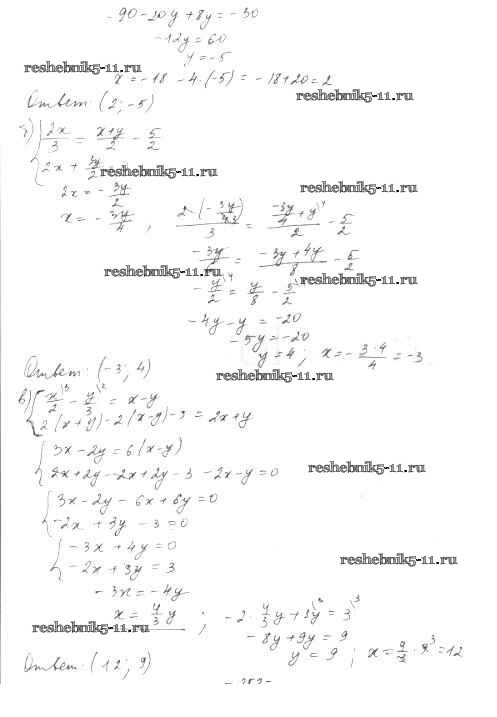 -90-20y+8y=-30
-12y=60
y=-5
reshebnik5-11.ru
x=-18-4·(-5)=-18+20=2
reshebnik5-11.ru
Ответ: (2; -5)
б) { 2x/3 = (x+y)/2 - 5/2
2x + 3y/2
reshebnik5-11.ru
2x = - 3y/2
reshebnik5-11.ru
x = - 3y/4 ; 2·(-3y/4)/3 = (-3y/4+y)/2 - 5/2
= (-3y+4y)/8 - 5/2
reshebnik5-11.ru
-y/2 = y/8 - 5/2
reshebnik5-11.ru
-4y-y=-20
-5y=-20
y=4; x=- 3·4/4 =-3
Ответ: (-3; 4)
reshebnik5-11.ru
в) { x/2 - y/3 = x-y
2(x+y)-2(x-y)-3=2x+y
{ 3x-2y=6(x-y)
2x+2y-2x+2y-3-2x-y=0
reshebnik5-11.ru
{ 3x-2y-6x+6y=0
-2x+3y-3=0
{ -3x+4y=0
-2x+3y=3
reshebnik5-11.ru
-3x=-4y
x= 4/3 y ; -2· 4/3 y+3y=3
reshebnik5-11.ru
-8y+9y=9
y=9; x= 4/3 ·9=12
Ответ: (12; 9)